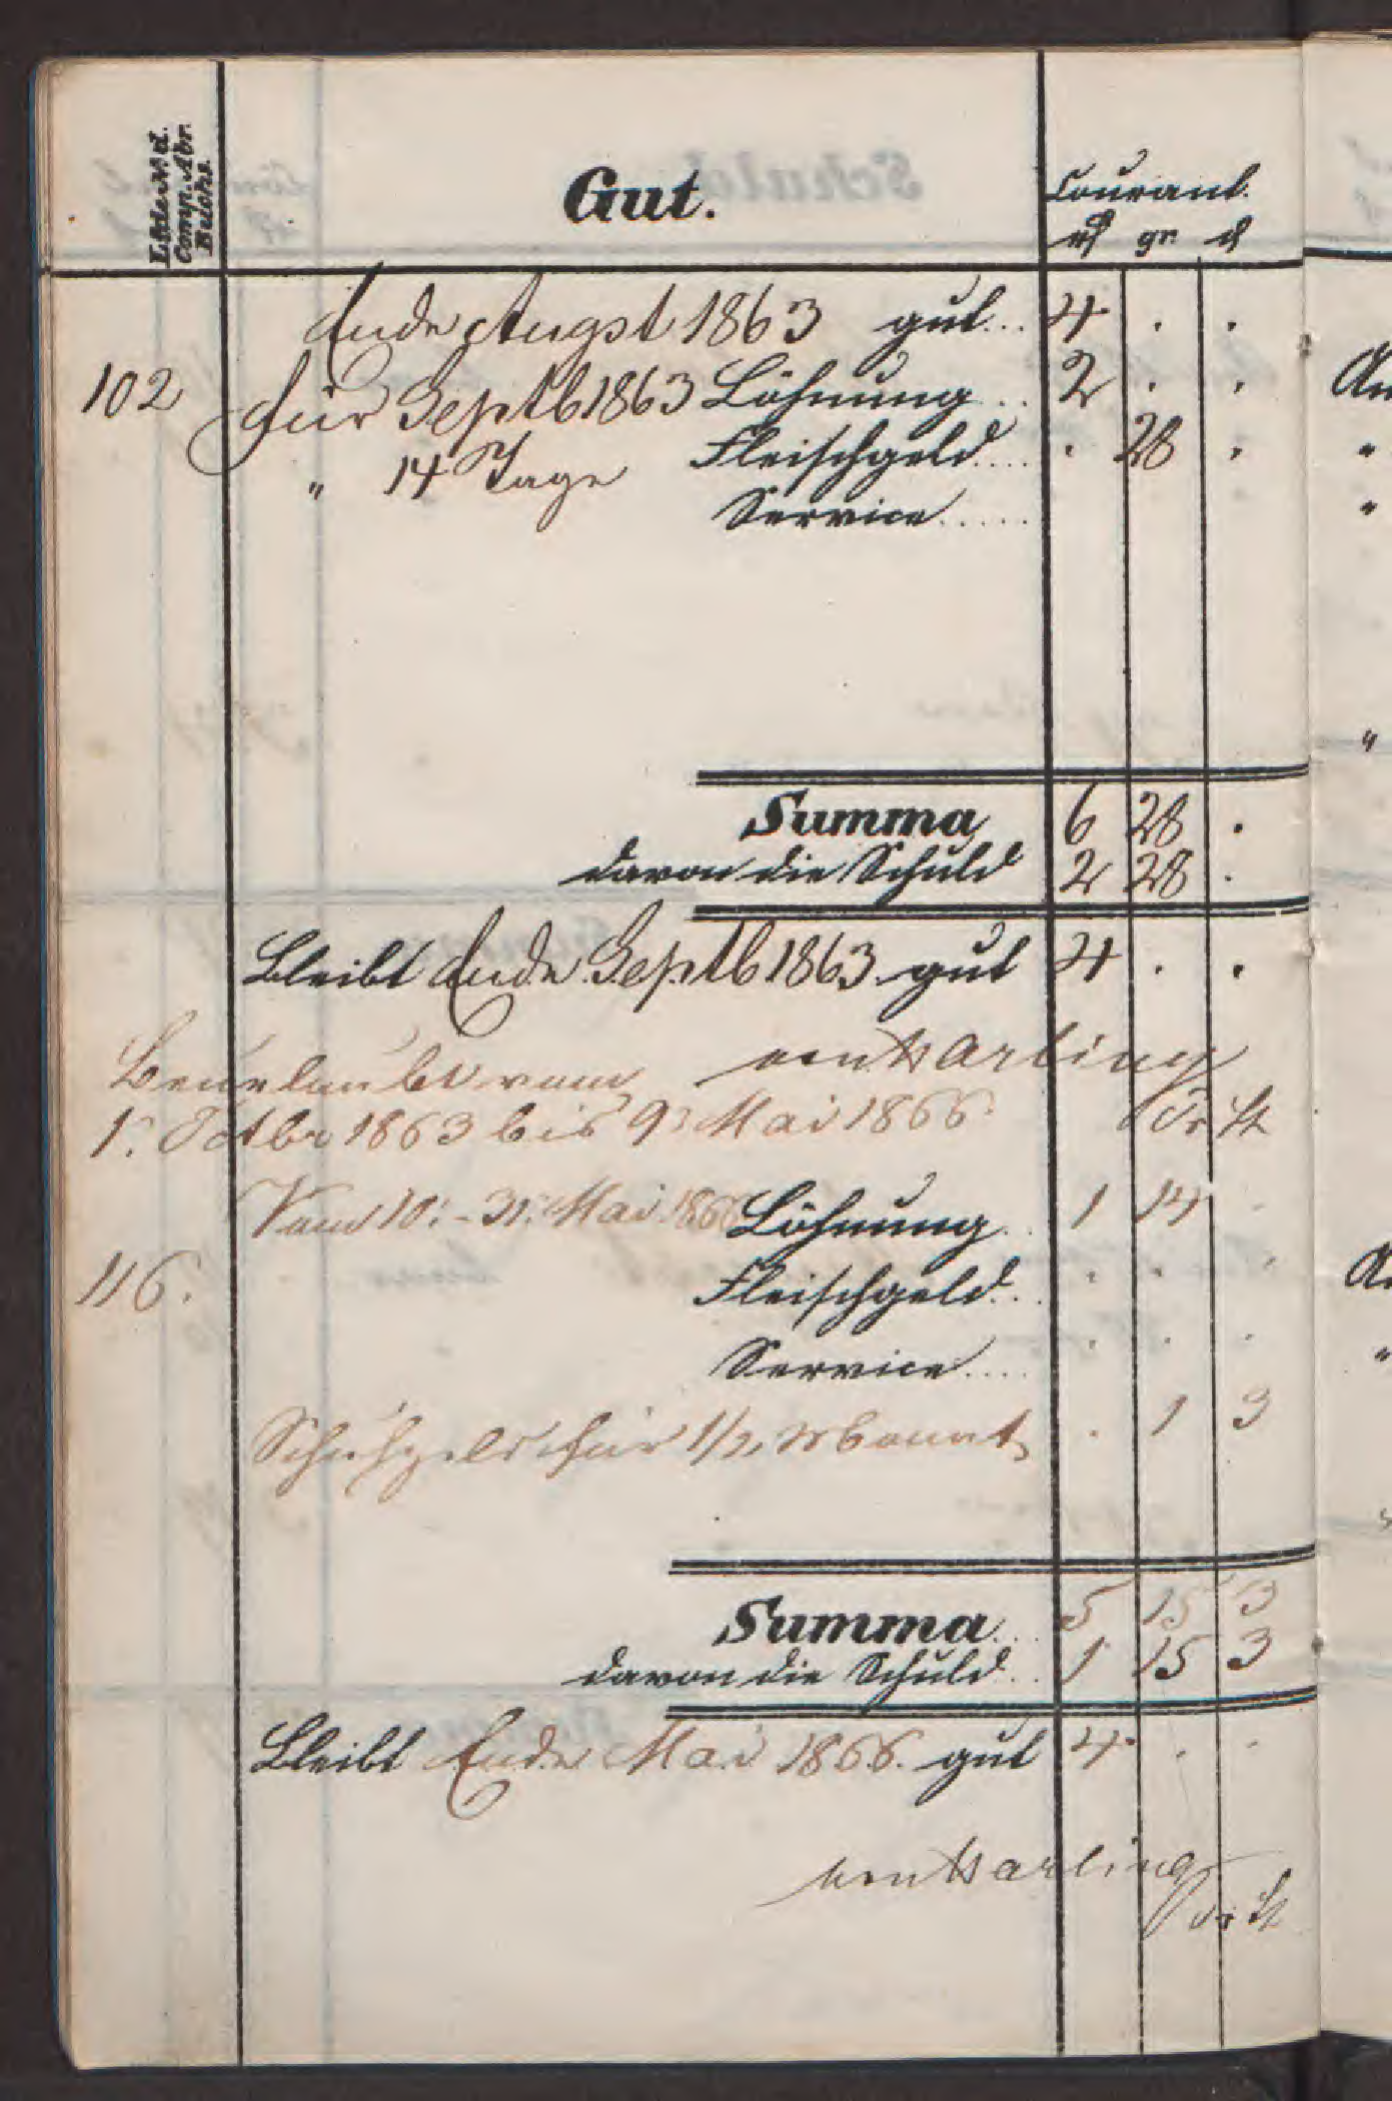 Lfde No d.
Comp. Abr.
Buchs.
Gut.
Courant.
rℓ gr. ₰
Ende Augst 1863 gut... 4 . .
102 Für Septb 1863 Löhnung.. 2 . .
" 14 Tage Fleischgeld.... . 28 .
Service.....
Summa 6 28 .
davon die Schuld 2 28 .
Bleibt Ende Septb 1863 gut 4 . .
Beurlaubt vom
1. Octbr 1863 bis 9. Mai 1866.
Vom 10. - 31. Mai 1866 Löhnung.. 1 14 .
116. Fleischgeld.. . . .
Service.... . . .
Schuhgeld für 1/2 Monat . 1 3
Summa... 5 15 3
davon die Schuld.. 1 15 3
Bleibt Ende Mai 1866. gut 4 . .